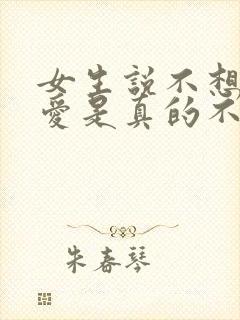 女生説不想
愛是真的不
朱春琴